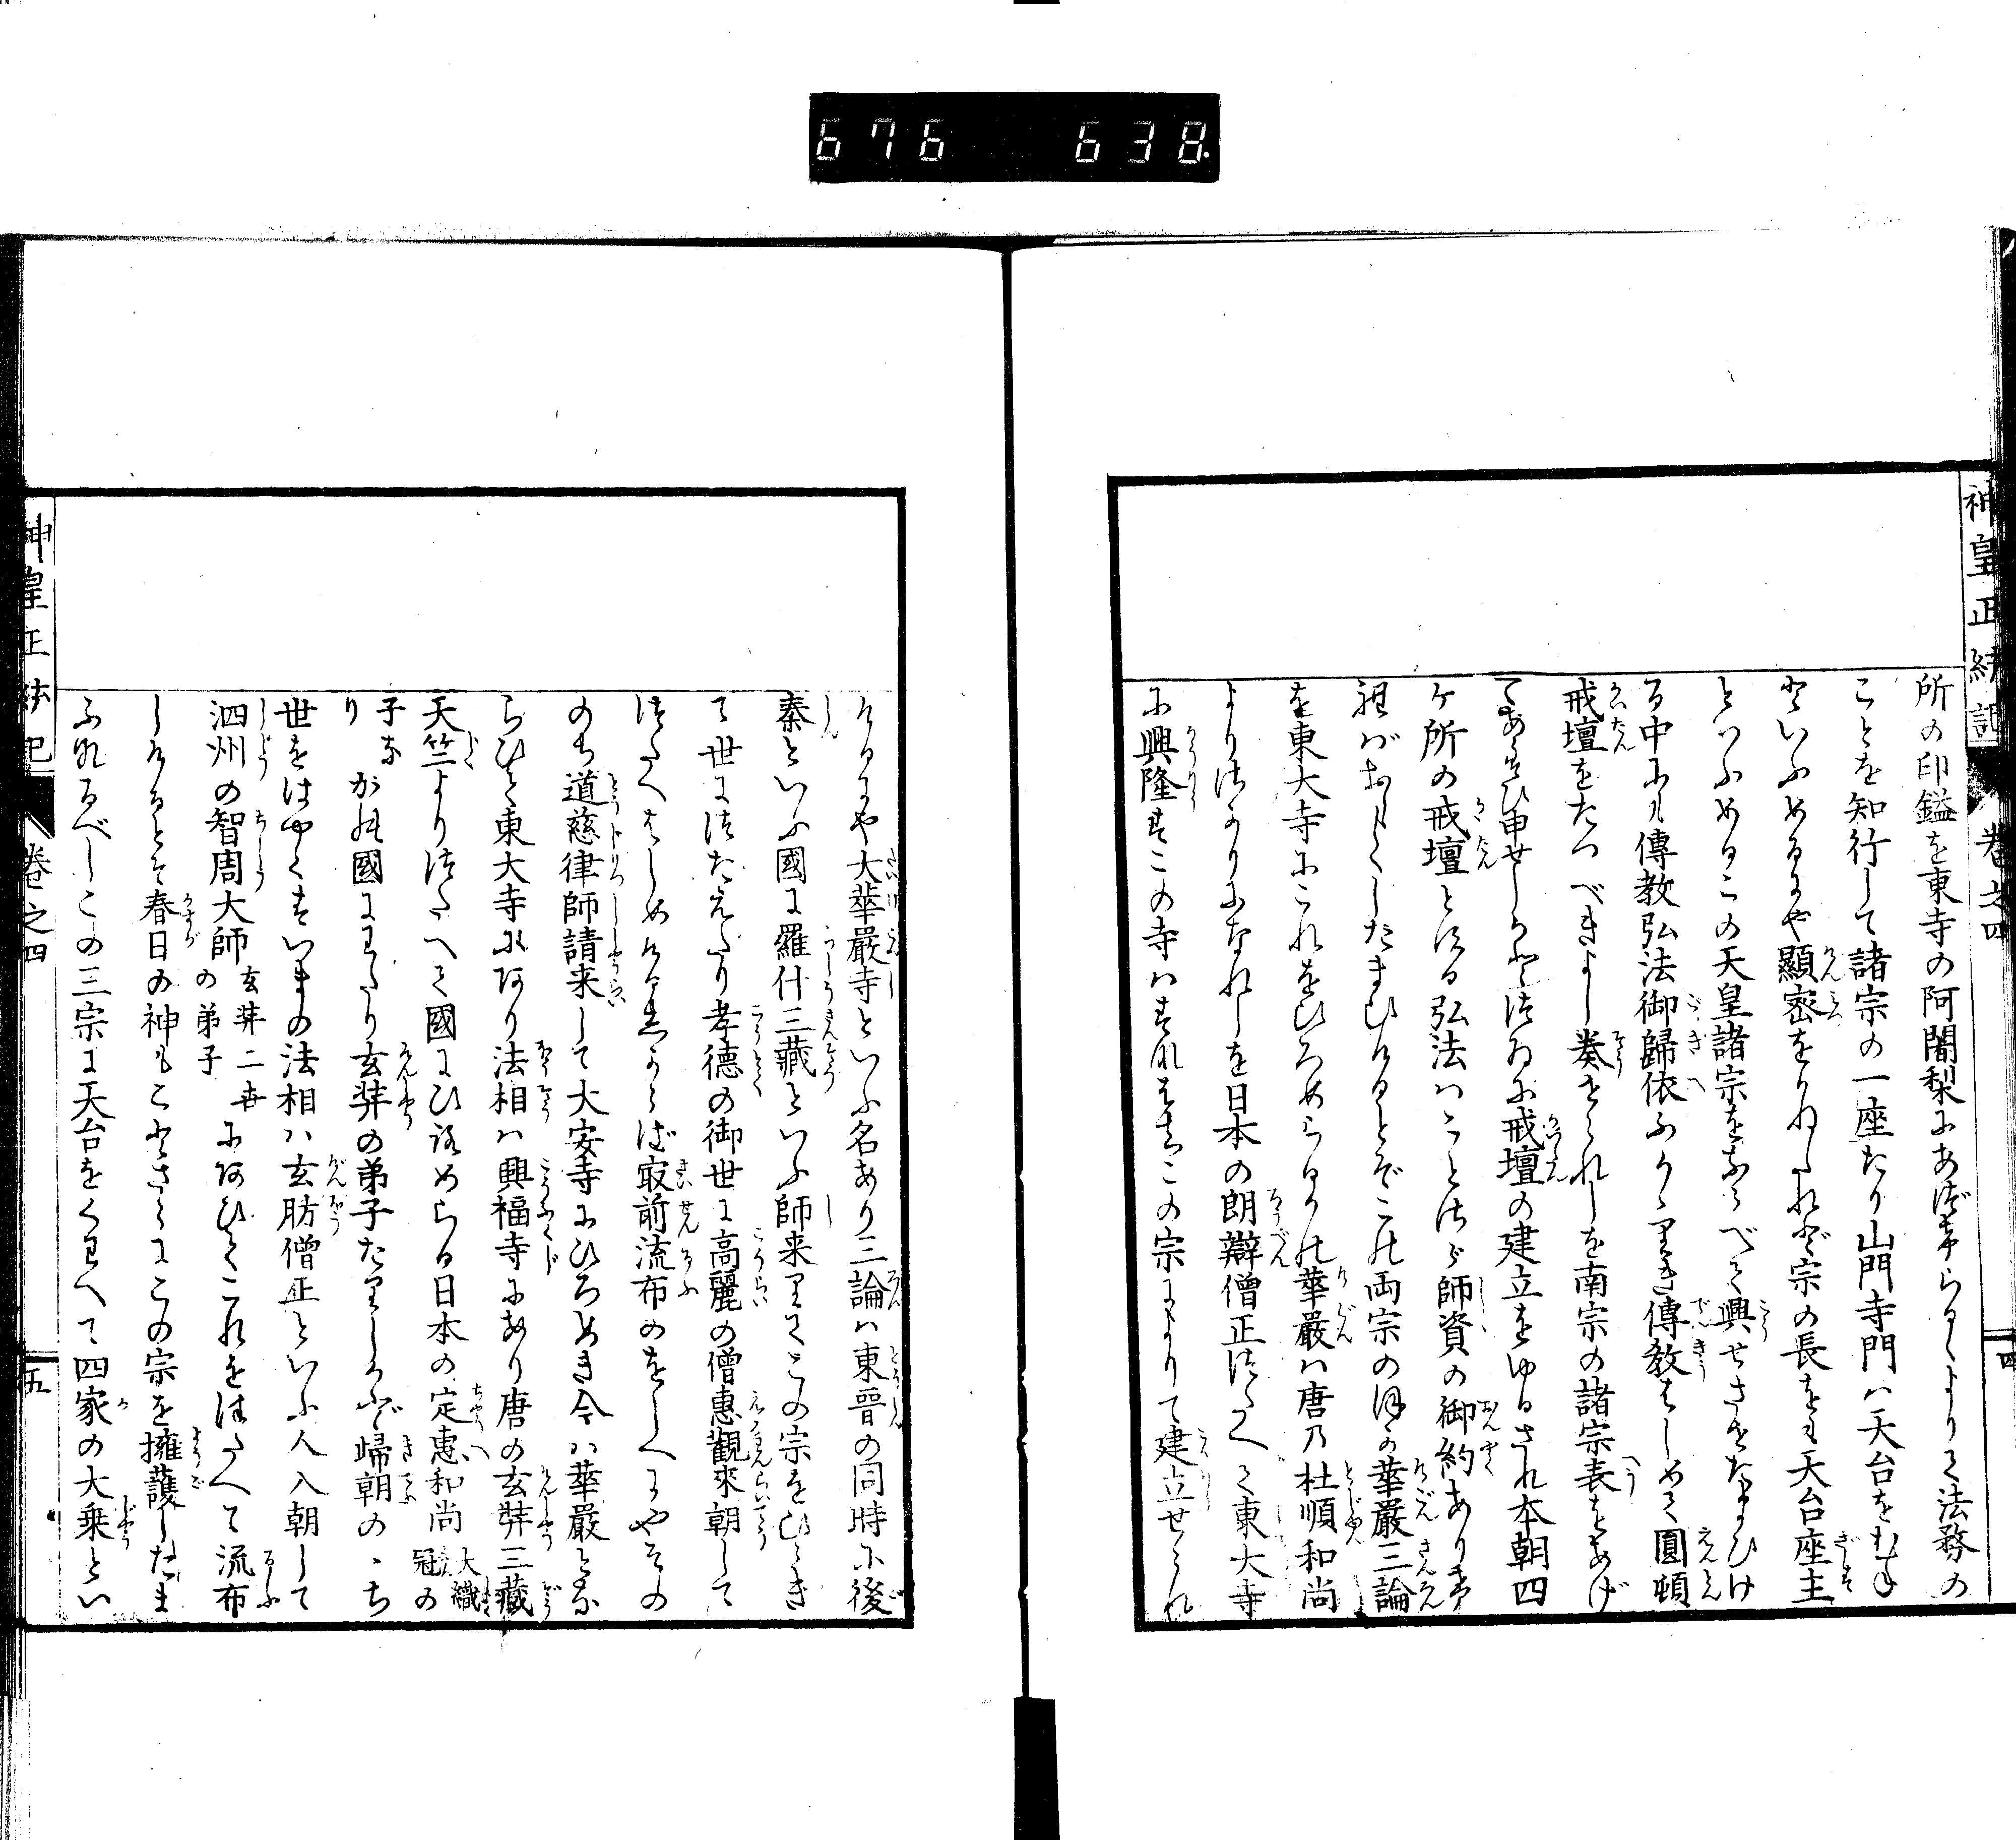 676 638.
神皇正統記 巻之四 四
所の印鎰を東寺の阿闍梨にあづけらるゝよりて法務の
ことを知行して諸宗の一座たり山門寺門は天台をむね
といふめるにや顯密をかねたれど宗の長をも天台座主
といふめりこの天皇諸宗をならべて興せさせたまひけ
る中にも傳教弘法御歸依ふかゝりき傳教はじめて圓頓
戒壇をたつべきよし奏せられしを南宗の諸宗表をあげ
てあらそひ申せしかどつゐに戒壇の建立をゆるされ本朝四
ケ所の戒壇となる弘法はことさら師資の御約ありけ
ればおもくしたまひけるとぞこの両宗のほか華嚴三論
を東大寺にこれをひろめらるかの華嚴は唐乃杜順和尚
よりさかりになれしを日本の朗辯僧正つたへて東大寺
に興隆すこの寺はすなはちこの宗によりて建立せられ
けるにや大華嚴寺といふ名あり三論は東晉の同時に後
秦といふ國に羅什三藏といふ師来りてこの宗をひらき
て世につたえたり孝德の御世に高麗の僧惠觀來朝して
つたへはじめけるしからば㝡前流布のをしへにやその
のち道慈律師請来して大安寺にひろめき今は華嚴とな
らひて東大寺にあり法相は興福寺にあり唐の玄弉三藏
天竺よりつたへて國にひろめらる日本の定惠和尚大織冠の
子なりかの國にわたり玄弉の弟子たりしかど歸朝のゝち
世をはやくすいまの法相は玄肪僧正といふ人入朝して
泗州の智周大師玄弉二世の弟子にあひてこれをつたへて流布
しけるとぞ春日の神もことさらにこの宗を擁護したま
ふなるべしこの三宗に天台をくわへて四家の大乗とい
神皇正統記 巻之四 五